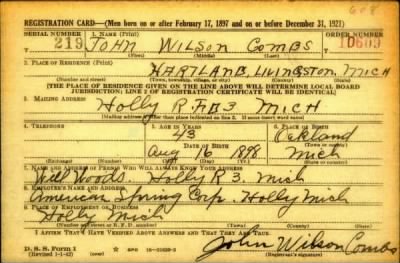 608
REGISTRATION CARD—(Men born on or after February 17, 1897 and on or before December 31, 1921)
SERIAL NUMBER 1. NAME (Print) ORDER NUMBER
219 JOHN WILSON COMBS 10609
(First) (Middle) (Last)
2. PLACE OF RESIDENCE (Print)
HARTLAND, LIVINGSTON, MICH
(Number and street) (Town, township, village, or city) (County) (State)
[THE PLACE OF RESIDENCE GIVEN ON THE LINE ABOVE WILL DETERMINE LOCAL BOARD
JURISDICTION; LINE 2 OF REGISTRATION CERTIFICATE WILL BE IDENTICAL]
3. MAILING ADDRESS
Holly R.F.D 3 MICH
[Mailing address if other than place indicated on line 2. If same insert word same]
4. TELEPHONE 5. AGE IN YEARS 6. PLACE OF BIRTH
43 Oakland
DATE OF BIRTH (Town or county)
Aug 16 1898 Mich
(Exchange) (Number) (Mo.) (Day) (Yr.) (State or country)
7. NAME AND ADDRESS OF PERSON WHO WILL ALWAYS KNOW YOUR ADDRESS
Will Woods. Holly R 3. Mich
8. EMPLOYER'S NAME AND ADDRESS
American Spring Corp. Holly Mich
9. PLACE OF EMPLOYMENT OR BUSINESS
Holly Mich
(Number and street or R. F. D. number) (Town) (County) (State)
I AFFIRM THAT I HAVE VERIFIED ABOVE ANSWERS AND THAT THEY ARE TRUE.
D. S. S. Form 1
(Revised 1-1-42) GPO
John Wilson Combs
(Registrant's signature)